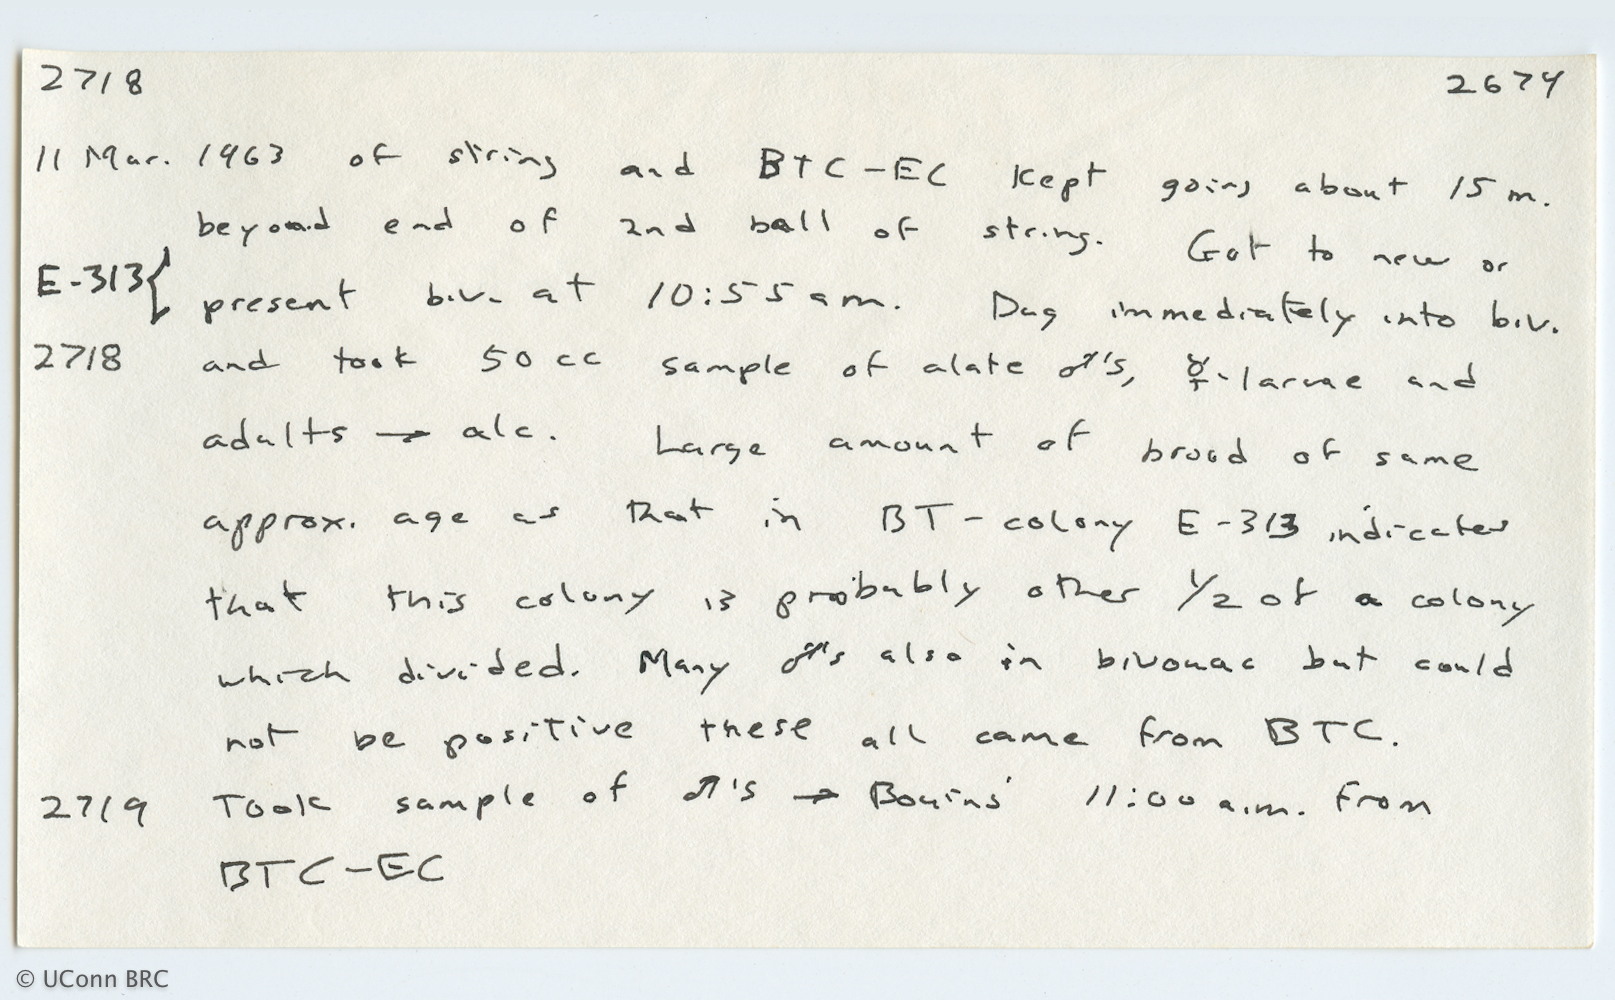 2718 2674
11 Mar. 1963 of string and BTC-EC kept going about 15 m.
beyond end of 2nd ball of string. Got to new or
E-313{ present biv. at 10:55 am. Dug immediately into biv.
2718 and took 50 cc sample of alate ♂'s, ☿-larvae and
adults → alc. Large amount of brood of same
approx. age as that in BT-colony E-313 indicates
that this colony is probably other 1/2 of a colony
which divided. Many ♂'s also in bivouac but could
not be positive these all came from BTC.
2719 Took sample of ♂'s → Bouins' 11:00 a.m. from
BTC-EC
© UConn BRC